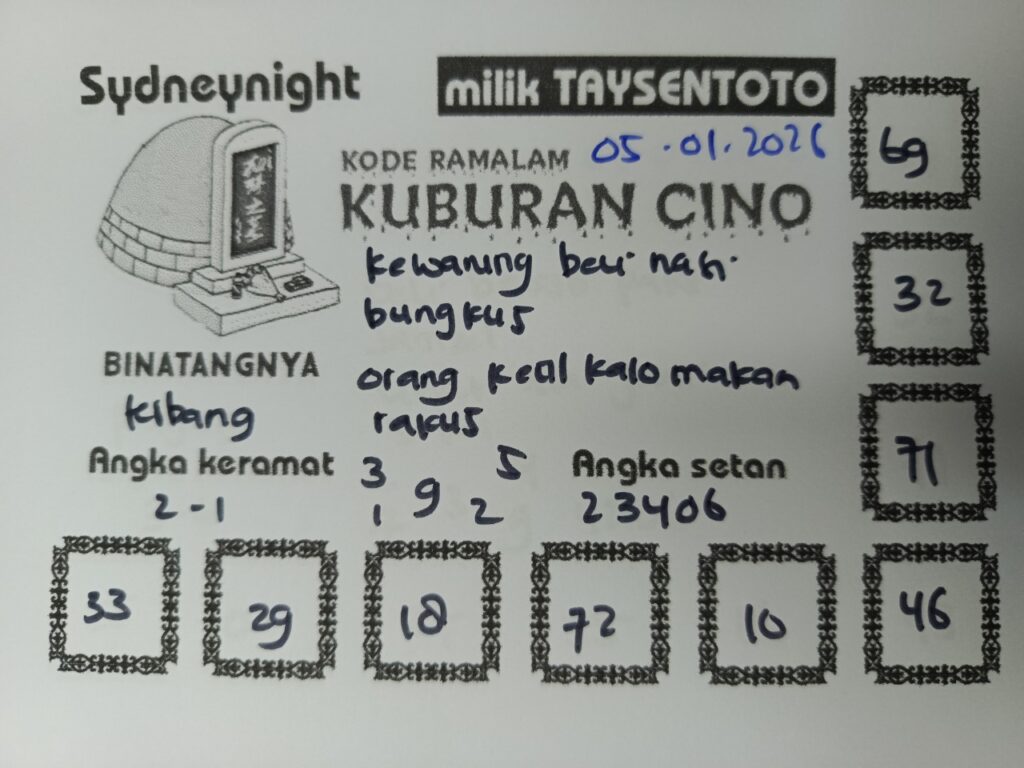 Sydneynight
milik TAYSENTOTO
KODE RAMALAM 05.01.2026
KUBURAN CINO
kewarung beli nasi
bungkus
orang kecil kalo makan
rakus
BINATANGNYA
kibang
Angka keramat
2-1
3 9 5
1 2
Angka setan
23406
69
32
71
33 29 18 72 10 46